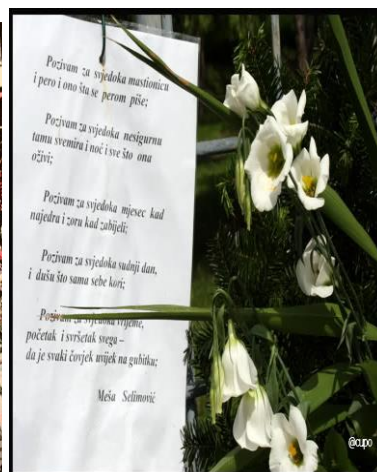 Pozivam za svjedoka mastionicu
i pero i ono šta se perom piše;
Pozivam za svjedoka nesigurnu
tamu svemira i noć i sve što ona
oživi;
Pozivam za svjedoka mjesec kad
najedra i zoru kad zabijeli;
Pozivam za svjedoka sudnji dan,
i dušu što sama sebe kori;
Pozivam za svjedoka vrijeme,
početak i svršetak svega –
da je svaki čovjek uvijek na gubitku;
Meša Selimović
@cupo